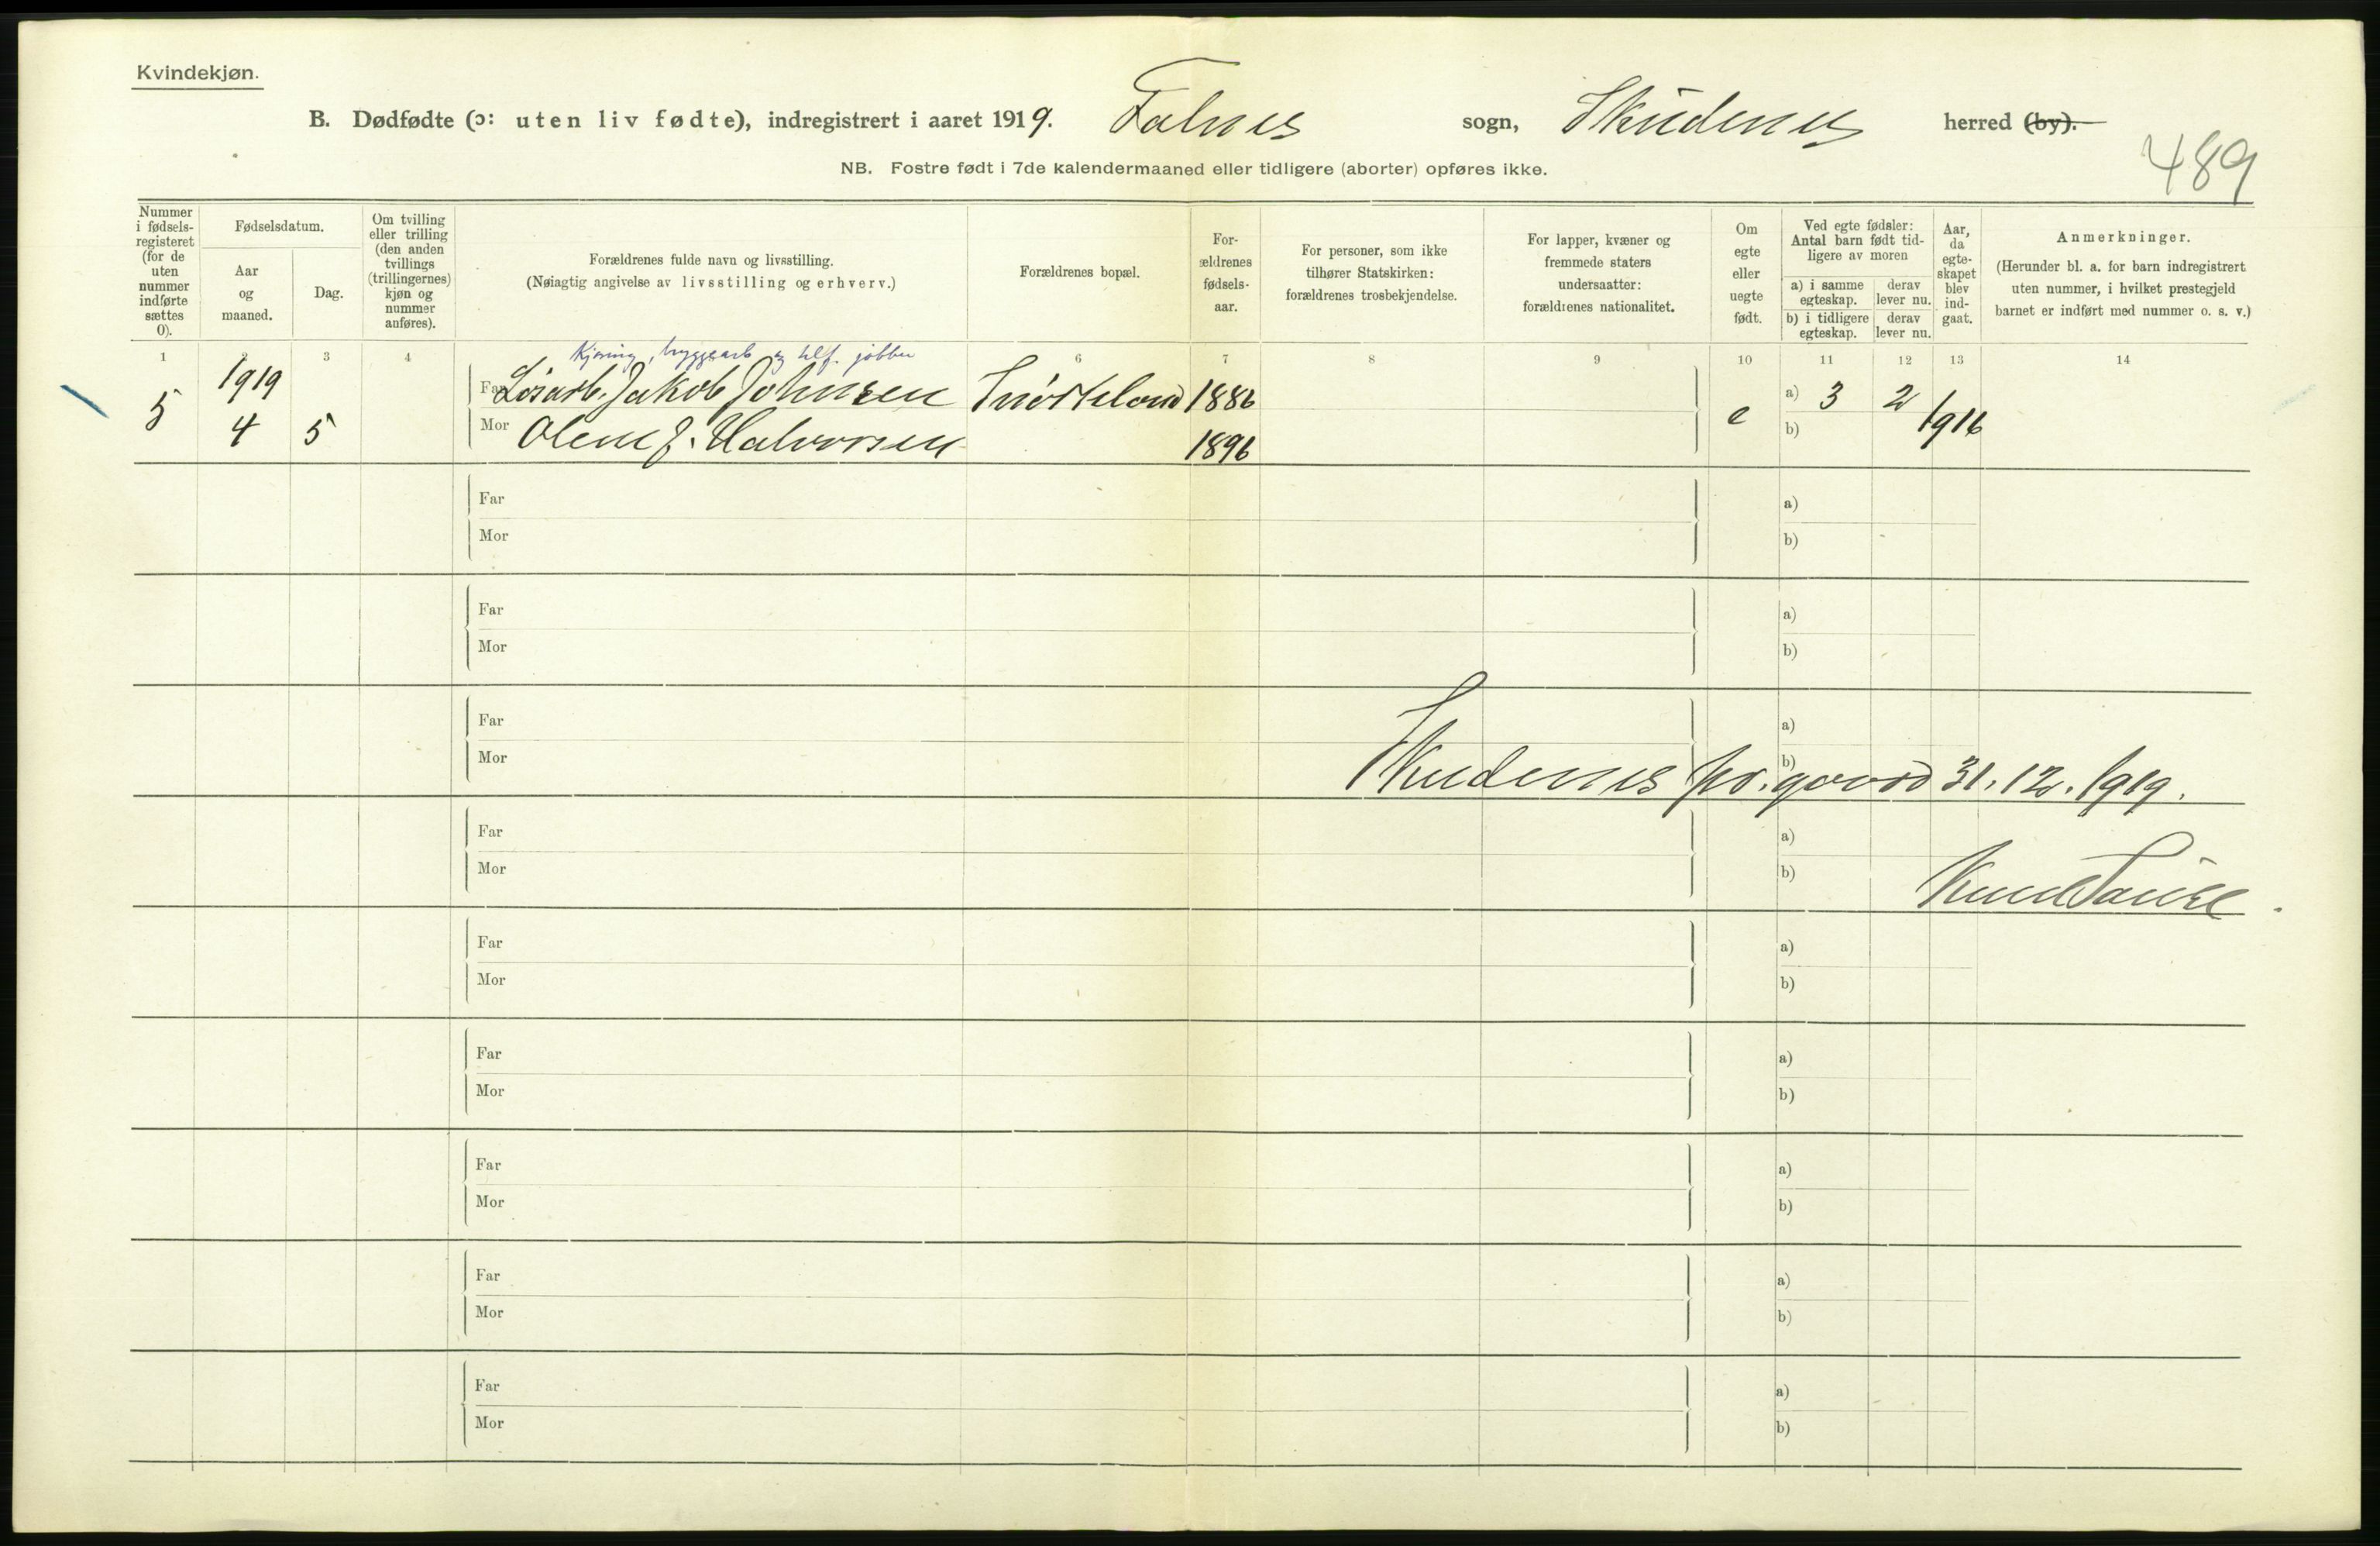 Kvindekjøn.
B. Dødfødte (ɔ: uten liv fødte), indregistrert i aaret 1919. Falnes sogn, Skudenes herred (by).
489
NB. Fostre født i 7de kalendermaaned eller tidligere (aborter) opføres ikke.
Nummer i fødsels-registeret (for de uten nummer indførte sættes 0).
Fødselsdatum.
Aar og maaned.
Dag.
Om tvilling eller trilling (den anden tvillings (trillingernes) kjøn og nummer anføres).
Forældrenes fulde navn og livsstilling.
(Nøiagtig angivelse av livsstilling og erhverv.)
Forældrenes bopæl.
For-ældrenes fødsels-aar.
For personer, som ikke tilhører Statskirken: forældrenes trosbekjendelse.
For lapper, kvæner og fremmede staters undersaatter: forældrenes nationalitet.
Om egte eller uegte født.
Ved egte fødsler: Antal barn født tid-ligere av moren
a) i samme egteskap. derav lever nu.
b) i tidligere egteskap. derav lever nu.
Aar, da egte-skapet blev ind-gaat.
Anmerkninger.
(Herunder bl. a. for barn indregistrert uten nummer, i hvilket prestegjeld barnet er indført med nummer o. s. v.)
1 2 3 4 6 7 8 9 10 11 12 13 14
Kjøring, bryggearb og jobber
5 1919 Far Løsarb. Jakob Johnsen 1886 e a) 3 2 1916
4 5 Mor Olene J. Halvorsen 1896 b)
Far a)
Mor b)
Far a)
Mor b)
Far a)
Mor b)
Skudenes pr.gaard 31.12.1919.
Far a)
Mor b)
Far a)
Mor b)
Far a)
Mor b)
Far a)
Mor b)
Far a)
Mor b)
Far a)
Mor b)